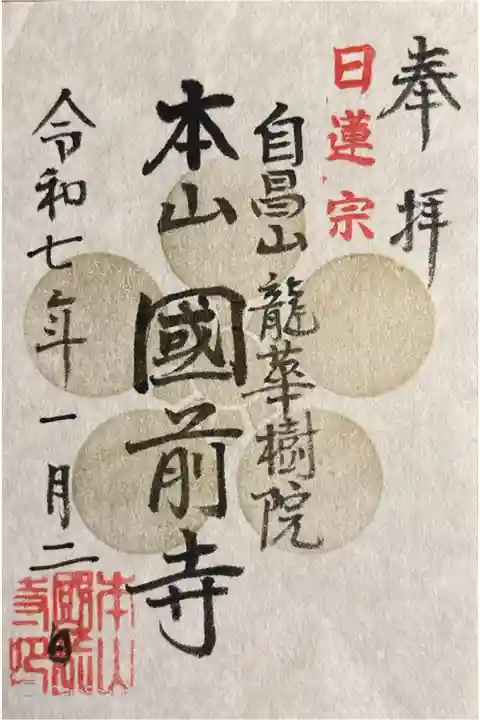 奉拝
日蓮宗
自昌山 龍華樹院
本山 國前寺
令和七年一月二日
本山國前寺印